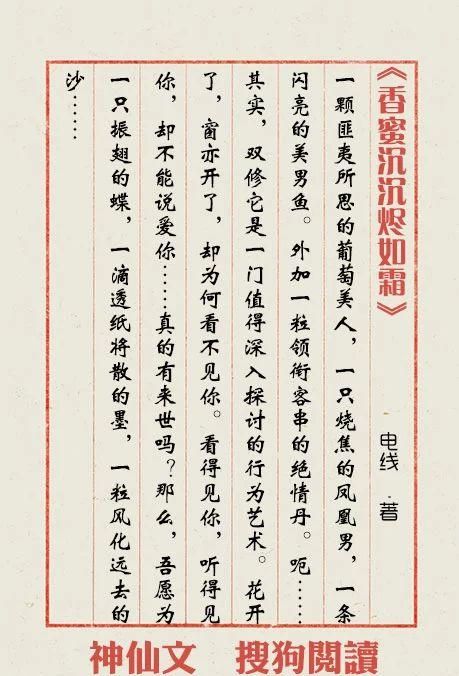 《香蜜沉沉烬如霜》
电线·著
一颗匪夷所思的葡萄美人，一只烧焦的凤凰男，一条
闪亮的美男鱼。外加一粒领衔客串的绝情丹。呃……
其实，双修它是一门值得深入探讨的行为艺术。花开
了，窗亦开了，却为何看不见你。看得见你，听得见
你，却不能说爱你……真的有来世吗？那么，吾愿为
一只振翅的蝶，一滴透纸将散的墨，一粒风化远去的
沙……
神仙文 搜狗閱讀